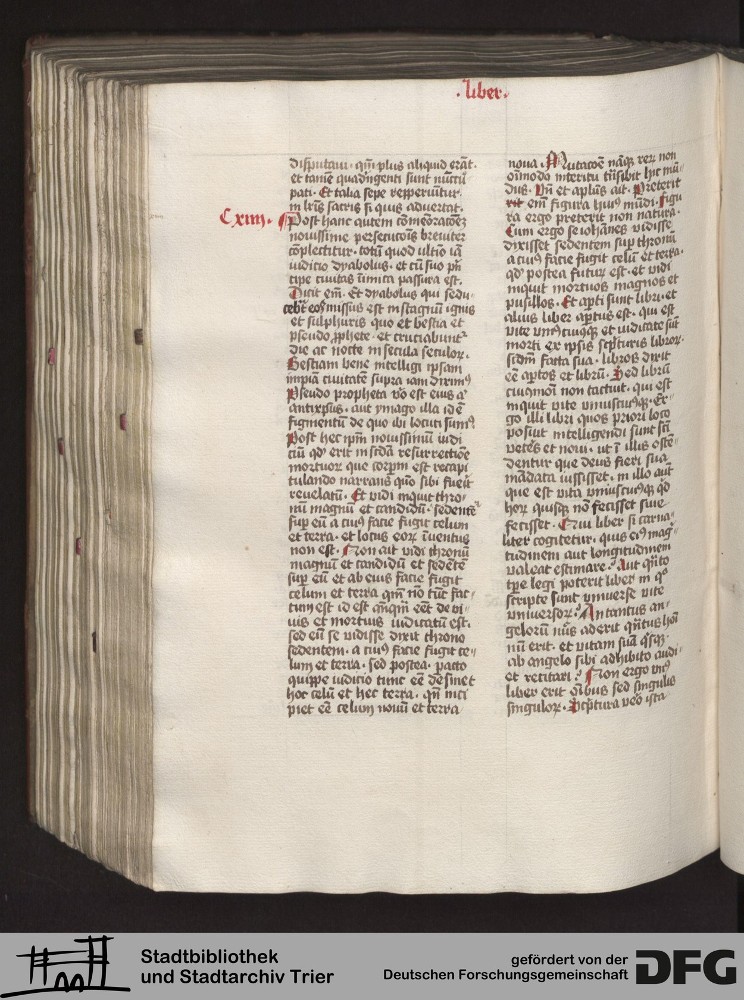 .liber.
disputaui. qm̄ plus aliquid erāt.
et tamē quadrīgenti sunt nūcu
pati. Et talia sepe reperiūtur
in lr̄is sacris si quis aduertat.
Cxiiij. Post hanc autem cōmēoratōeȝ
nouissime persecucōis breuiter
cōplectitur. totū quod ultīo iā
iudicio dyabolus. et cū suo pn̄
cipe ciuitas inimica passura est.
Dicit em̄. Et dyabolus qui sedu-
cebt̄ eos missus est in stagnū ignis
et sulphuris quo et bestia et
pseudo ꝓphete. et cruciabuntᷣ
die ac nocte in secula seculoꝝ.
Bestiam bene intelligi ipsam
impiā ciuitatē supra iam diximꝰ
Pseudo propheta v̄o est eius aͭ
antix̄pus. aut ymago illa id ē
figmentū de quo ibi locuti sumꝰ
Post hec ip̄m nouissimū iudi
ciū qd̓ erit in scd̄a resurrectiōe
mortuoꝝ que corpm̄ est recapi
tulando narrans quō sibi fuerit
reuelatū. Et vidi inquit thro-
nū magnū et candidū. sedentēᷓ
sup̱ eū a ciuꝰ facie fugit celum
et terra. et locus eoꝝ īuentus
non est. Non ait vidi thronū
magnū et candidū et sedētē
sup̱ eū et ab eius facie fugit
celum et terra qm̄ nō tūc fac-
tum est id est anq̄m eēt de vi-
uis et mortuis iudicatū est.
sed eū se vidisse dixit throno
sedentem. a ciuꝰ facie fugit ce-
lum et terra. sed postea. ꝑacto
quippe iudicio tunc eē desinet
hoc celū et hec terra. qn̄ inci
piet eē celum nouū et terra
noua. Mutacōe nāqꝫ reꝝ non
oīmodo interitu trāsibit hic mū-
dus. Vn̄ et aplūs ait. Preterit
em̄ figura huiꝰ mūdi. Figu
ra ergo preterit non natura.
Cum ergo se iohānes vidisse
dixisset sedentem sup̱ thronū
a ciuꝰ facie fugit celū et terra.
qd̓ postea futuꝝ est. et vidi
inquit mortuos magnos et
pusillos. Et aꝑti sunt libri. et
alius liber aꝑtus est. qui est
vite vniꝰcuiusqꝫ et iudicati sūt
morti ex ipsis sc̄pturis libroꝝ.
scdm̄ facta sua. libros dixit
eē aꝑtos et librū. Sed librū
cuiꝰmōi non tacuit. qui est
inquit vite vniuscuiꝰqꝫ. Er-
go illi libri quos priori loco
posuit intelligendi sunt sc̄i
vetēs et noui. ut ī illis oste-
dentur que deus fieri sua
mādata iussisset. in illo aūt
que est vita vniuscuiꝰqꝫ qd̓
hoꝝ quisqꝫ nō fecisset siue
fecisset. Qui liber si carna-
liter cogitetur. quis eiꝰ mag-
nitudinem aut longitudinem
valeat estimare. Aut qn̄to
tp̱e legi poterit liber in qͦ
scripte sunt vniuerse vite
vniuersoꝝ. An tantus an-
geloꝝ nūs aderit qn̄tus hoī
nū erit. et vitam suā qͥsqꝫ
ab angelo sibi adhibito audi-
et recitari. Non ergo vnꝰ
liber erit oībus sed singulis
singuloꝝ. Sc̄ptura v̄o ista
Stadtbibliothek
und Stadtarchiv Trier
gefördert von der
Deutschen Forschungsgemeinschaft
DFG